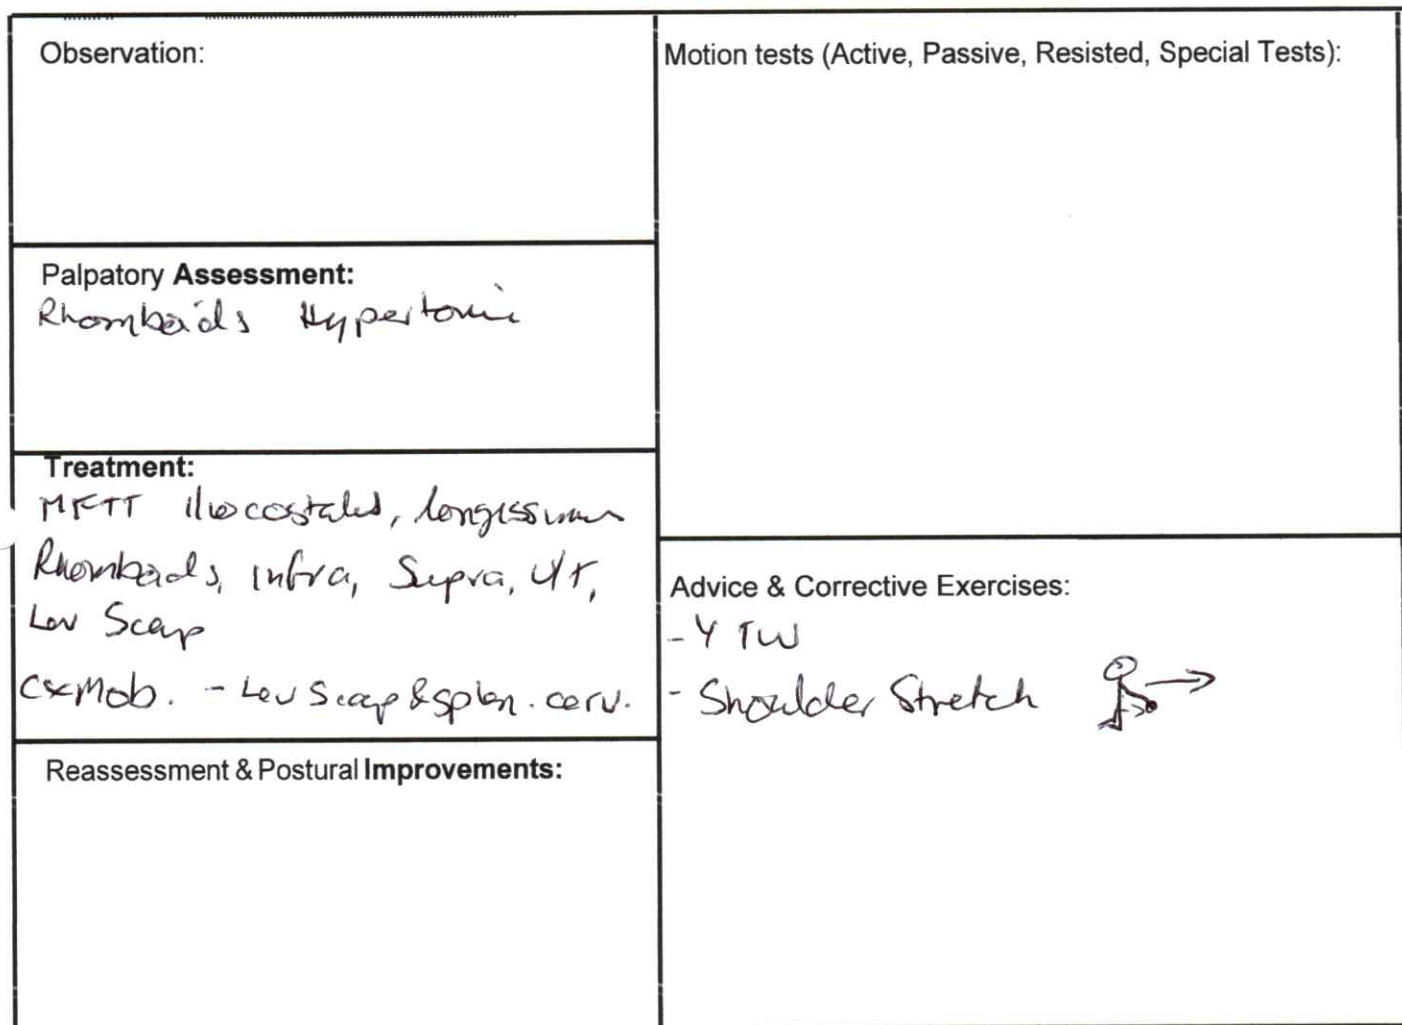 Observation:
Palpatory Assessment:
Rhomboids Hypertonic
Treatment:
MFTT Iliocostales, longissimus
Rhomboids, Infra, Supra, UT,
Lev Scap
CxMob. - Lev Scap & splen. cerv.
Reassessment & Postural Improvements:
Motion tests (Active, Passive, Resisted, Special Tests):
Advice & Corrective Exercises:
- YTW
- Shoulder Stretch